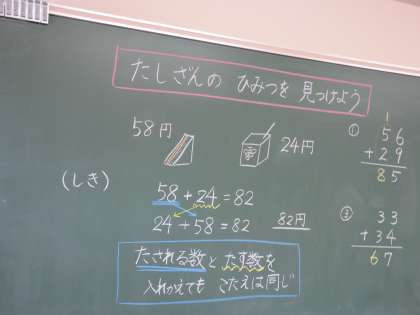 たしざんの ひみつを 見つけよう
58円
24円
(しき)
58+24=82
24+58=82 82円
たされる数とたす数を
入れかえても こたえは同じ
①
1
56
+29
85
②
33
+34
67